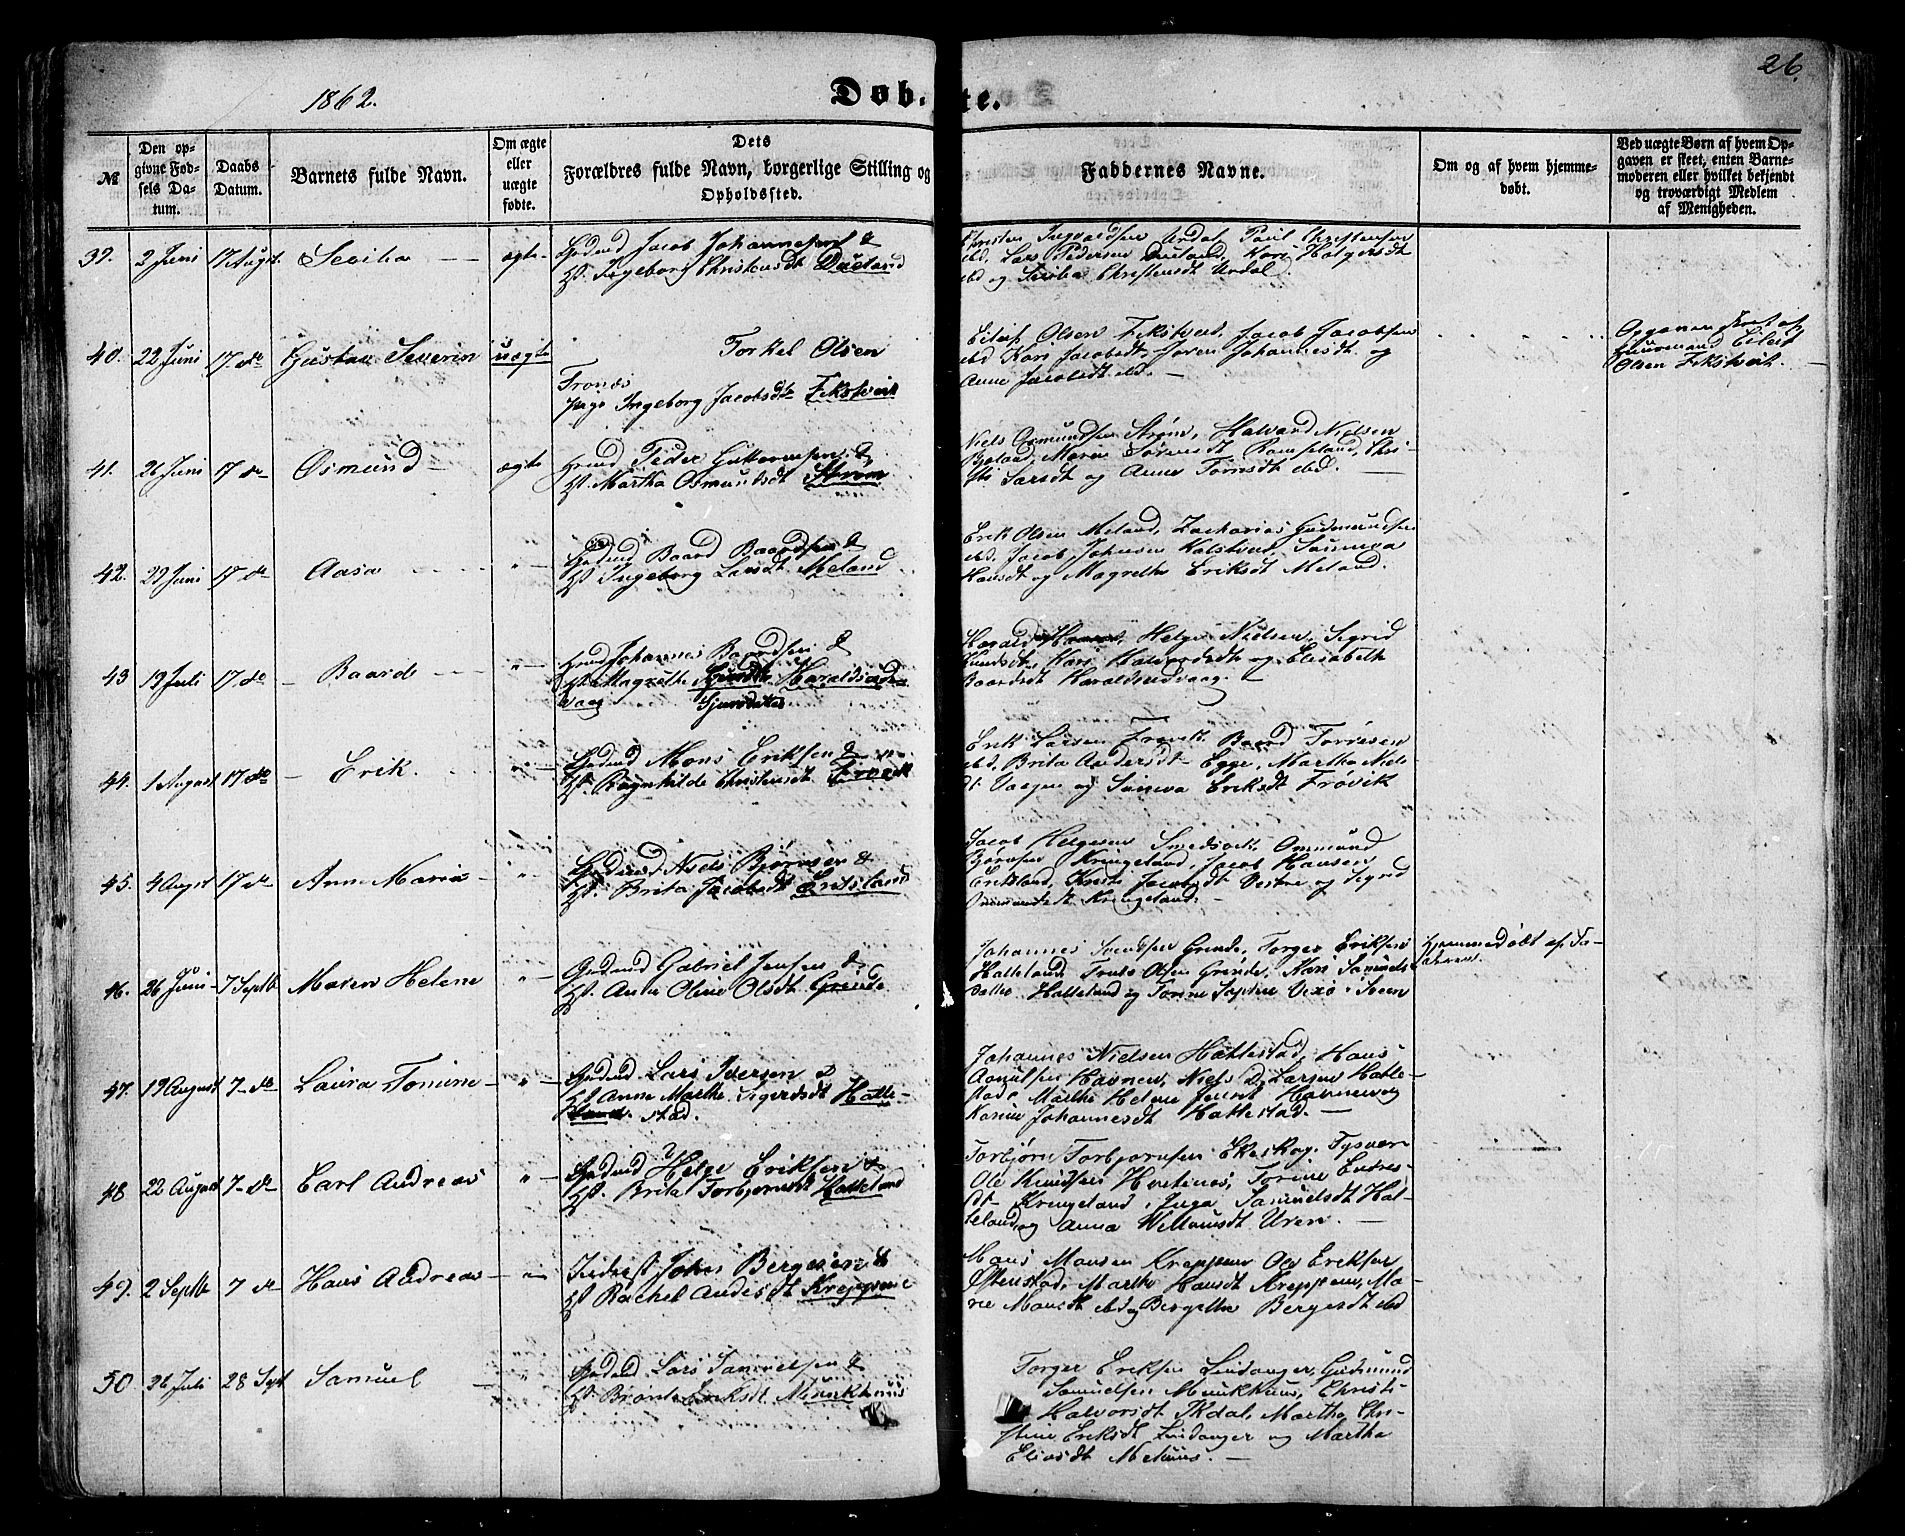 26.
1862.
Døb- te.
№
Den op-
givne Fød-
sels Da-
tum.
Daabs
Datum.
Barnets fulde Navn.
Om ægte
eller
uægte
fødte.
Dets
Forældres fulde Navn, borgerlige Stilling og
Opholdssted.
Faddernes Navne.
Om og af hvem hjemme-
døbt.
Ved uægte Børn af hvem Op-
gaven er skeet, enten Barne-
moderen eller hvilket bekjendt
og troværdigt Medlem
af Menigheden.
39. 2 Juni 17 Augst Sevika ægte
Gbdmd Jacob Johannesen &
H. Ingeborg Christensdt Dueland
Christen Ingvaldsen Urdal, Poul Christensen
ibd. Lars Pedersen Dueland, Kari Holgersdt
ibd og Christensdt Urdal.
40. 22 Juni 17 do Gustav Severin uægte
Torkel Olsen
Fronæs
Pige Ingeborg Jacobsdt Fikstveit
Eiluf Olsen Fikstveit, Jacob Jacobsen
ibd Kari Jacobsdt, Johannesdt og
Anne Jacobsdt ibd.
Opgaven skeet af
Eiluf
Olsen Fikstveit.
41. 26 Juni 17 do Osmund ægte
Peder Guttormsen &
H. Martha Osmundsdt Strøm
Niels Osmundsen Strøm, Halvard Nielsen
Bjoland, Maren Sørensdt Ramsland, Chri-
sti Larsdt og Anne ibd.
42. 29 Juni 17 do Aasa
Gbdmd Baard Baardsen &
H. Ingeborg Larsdt Meland
Erik Olsen Meland, Zacharias Gudmundsen
ibd. Jacob Johnsen Kalstveit, Sunneva
Hansdt og Magrethe Eriksdt Meland.
43 19 Juli 17 do Baard
Johannes Baardsen &
H. Magrethe Haraldseid-
vaag Gjurdsdtr
Harald Helge Nielsen, Sigrid
Knudsdt, Kari Halvardsdt og Elisabeth
Baardsdt Haraldseidvaag.
44. 1 August 17 do Erik
Gbdmd Mons Eriksen &
H. Ragnhilde Christensdt Frøvik
Erik Larsen Frøvik Baard Torresen
ibd, Brita Andersdt Egge, Martha Niels-
dt Vaagen og Suneva Eriksdt Frøvik
45. 4 Augst 17 do Anne Maria
Gbdmd Niels Bjørnsen &
H. Brita Jacobsdt Eriksland
Jacob Helgesen Smedsvik Ommund
Bjørnsen Kringeland, Jacob Hansen
Eriksland, Jacobsdt Vestre og Sigrid
Ommundsdt Kringeland.
46. 26 Juni 7 Septb Maren Helene
Gbdmd Gabriel Jensen &
H. Anne Oline Olsdt Grinde
Johannes Svendsen Grinde, Torger Eriksen
Hatteland, Truls Olsen Grinde, Kari Samuels-
datter Hatteland og Vixø i Skeen
Hjemmedøbt af Fa-
deren.
47. 19 August 7 do Laura Tomine
Gbdmd Lars Iversen &
H. Anne Marthe Sigurdsdt Hatte-
stad.
Johannes Nielsen Hattestad, Hans
Havnen, Niels D. Larsen Hatte-
stad, Marthe Helene Jensdt Havnen og
Karine Johannesdt Hattestad.
48 22 August 7 do Carl Andreas
Gbdmd Helge Eriksen &
H. Brita Torbjørnsdt Hatteland
Torbjørn Torbjørnsen Ekeskog, Tysvær
Ole Knudsen Hertinæs, Torine Endres-
dt Kringeland, Inga Samuelsdt Hat-
teland og Anna Uren.
49. 2 Septb 7 do Hans Andreas
Inderst John Bergesen &
H. Rachel Andersdt Kreppene
Mons Monsen Kreppene Ole Eriksen
Østenstad, Marthe Hansdt Kreppene, Ma-
rie Monsdt ibd og Bergethe Bergesdt ibd
50 26 Juli 28 Sept Samuel
Gbdmd Lars Samuelsen &
H. Eriksdt Munkhuus
Torger Eriksen Lindanger, Gudmund
Samuelsen Munkhuus, Christi
Halvorsdt Økdal, Martha Chri-
stine Eriksdt Lindanger og Martha
Eliasdt